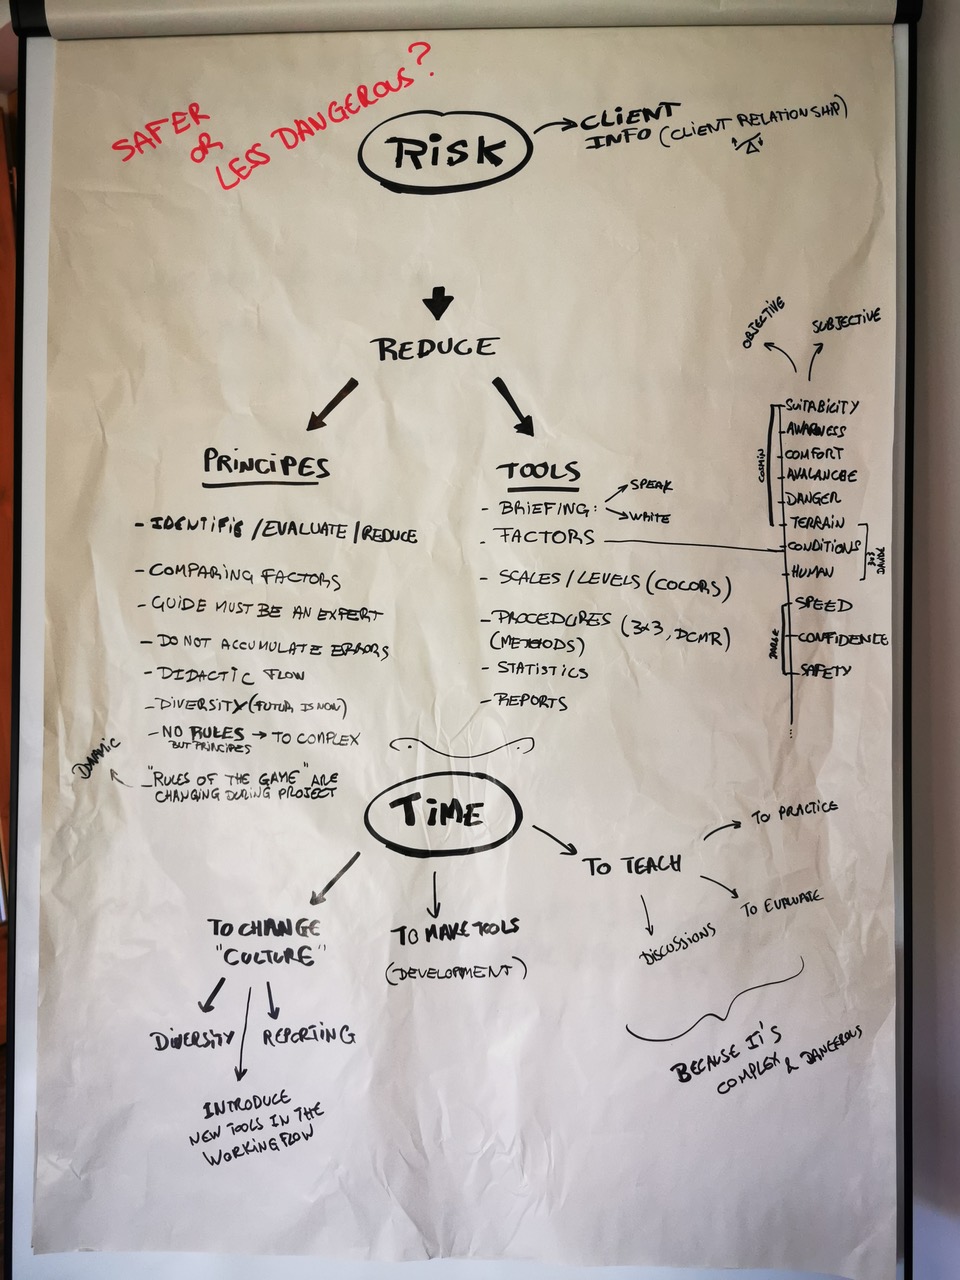 SAFER
OR
LESS DANGEROUS?
RiSK
CLiENT
INFO (CLIENT RELATIONSHIP)
REDUCE
OBJECTIVE
SUBJECTIVE
PRINCIPES
- IDENTIFIE / EVALUATE / REDUCE
- COMPARING FACTORS
- GUIDE MUST BE AN EXPERT
- DO NOT ACCUMULATE ERRORS
- DIDACTIC FLOW
- DIVERSITY (FUTUR IS NOW)
- NO RULES → TO COMPLEX
BUT PRINCIPES
- "RULES OF THE GAME" ARE
CHANGING DURING PROJECT
DYNAMIC
TOOLS
- BRIEFING:
SPEAK
WRITE
. FACTORS
- SCALES / LEVELS (COLORS)
- PROCEDURES (3x3, DCMR)
(METHODS)
- STATISTICS
- REPORTS
SUITABILITY
AWARNESS
COMFORT
AVALANCHE
DANGER
TERRAIN
CONDITIONS
HUMAN
SPEED
CONFIDENCE
SAFETY
...
COSMIN
3x3
DAVIDE
TiME
TO CHANGE
"CULTURE"
DIVERSITY
REPORTING
INTRODUCE
NEW TOOLS IN THE
WORKING FLOW
TO MAKE TOOLS
(DEVELOPMENT)
TO TEACH
TO PRACTICE
TO EVALUATE
DISCUSSIONS
BECAUSE IT'S
COMPLEX & DANGEROUS